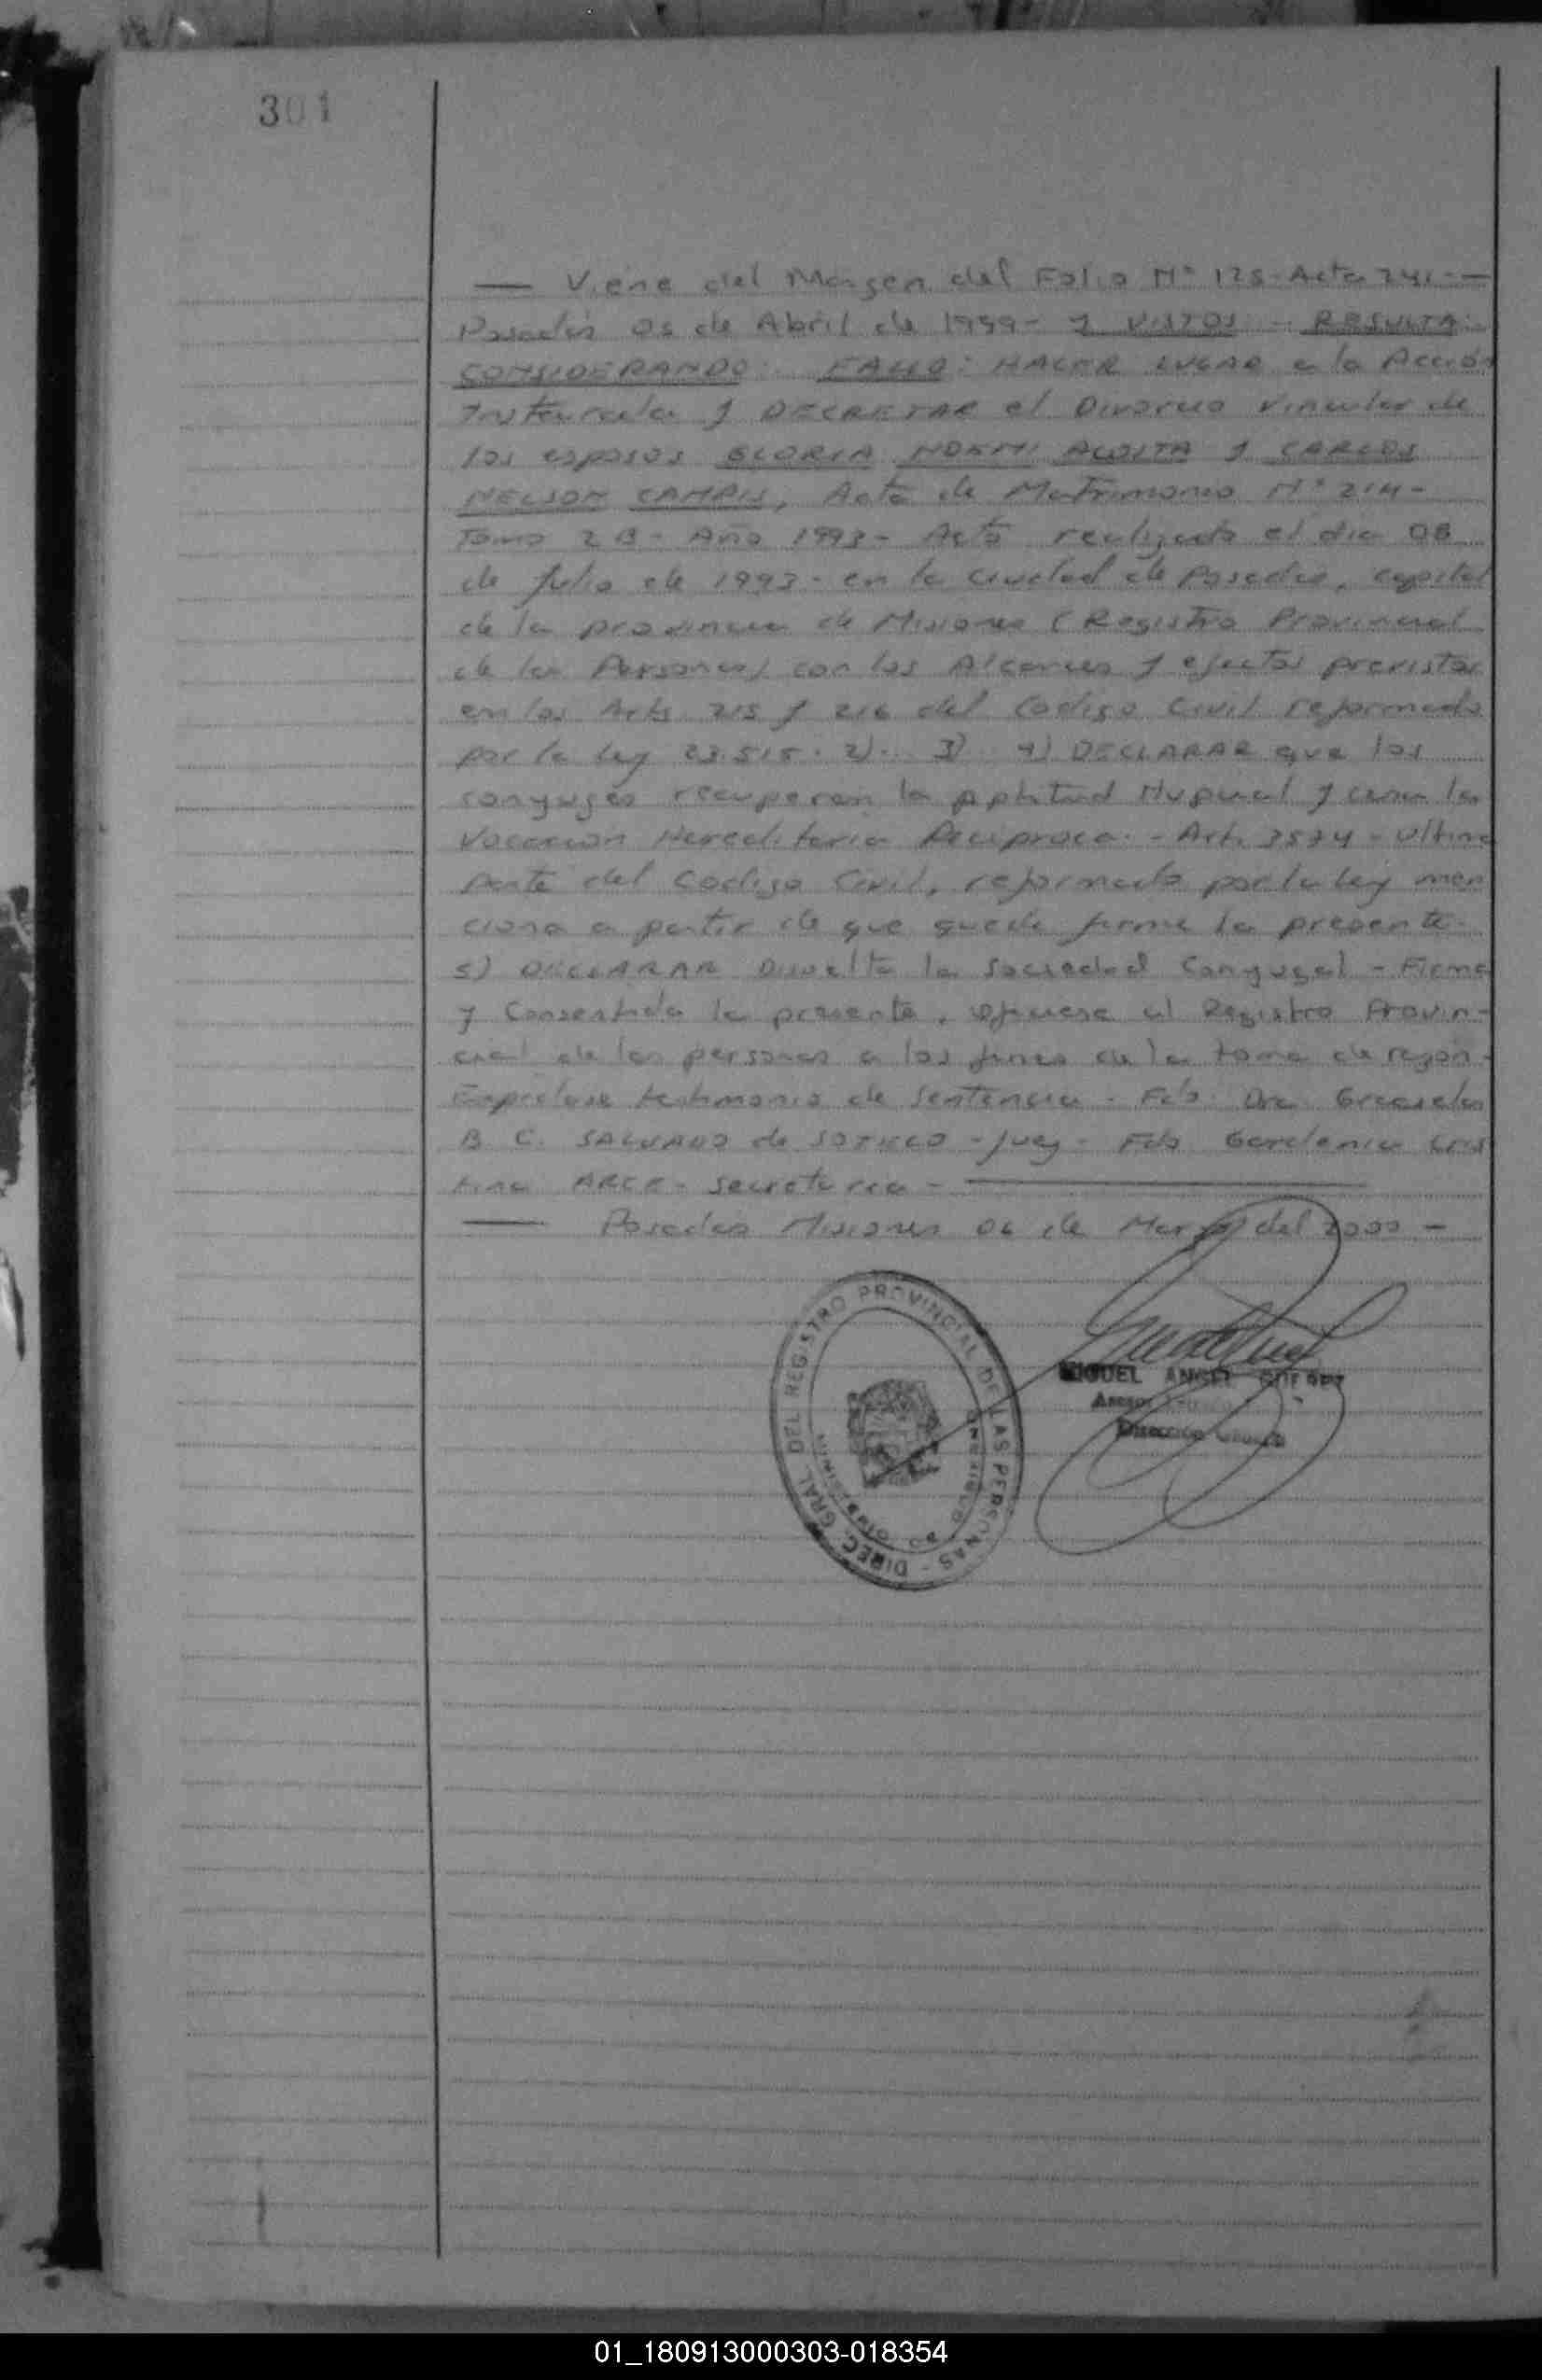 301
— Viene del Margen del Folio N° 125 - Acta 241 - —
Posadas 05 de Abril de 1999 - Y VISTOS - RESULTA:
CONSIDERANDO: FALLO: HACER LUGAR a la Acción
Instaurada y DECRETAR el Divorcio Vincular de
los esposos GLORIA NOEMI ACOSTA y CARLOS
NELSON CAMPIS, Acta de Matrimonio N° 214 -
Tomo 2B - Año 1993 - Acto realizado el dia 08
de Julio de 1993 - en la ciudad de Posadas, capital
de la provincia de Misiones (Registro Provincial
de las Personas) con los Alcances y efectos previstos
en los Arts. 215 y 216 del Codigo Civil reformado
por la Ley 23.515. 2).. 3) 4) DECLARAR que los
conyuges recuperan la Aptitud Nupcial y cesa la
Vocacion Hereditaria Reciproca. - Art. 3574 - Ultima
parte del Codigo Civil, reformado por la Ley men
ciona a partir de que quede firme la presente -
5) DECLARAR Disuelta la Sociedad Conyugal - Firme
y Consentida la presente, oficiese al Registro Provin-
cial de las personas a los fines de la toma de razon -
Expidase testimonio de Sentencia - Fdo. Dra Graciela
B. C. SALVADO de SOTELO - Juez - Fdo Gardenia Cris
tina ARCE - Secretaria -
— Posadas Misiones 06 de Marzo del 2000 -
DIREC. GRAL. DEL REGISTRO PROVINCIAL DE LAS PERSONAS -
MIGUEL ANGEL
Asesor
Dirección General
01_180913000303-018354